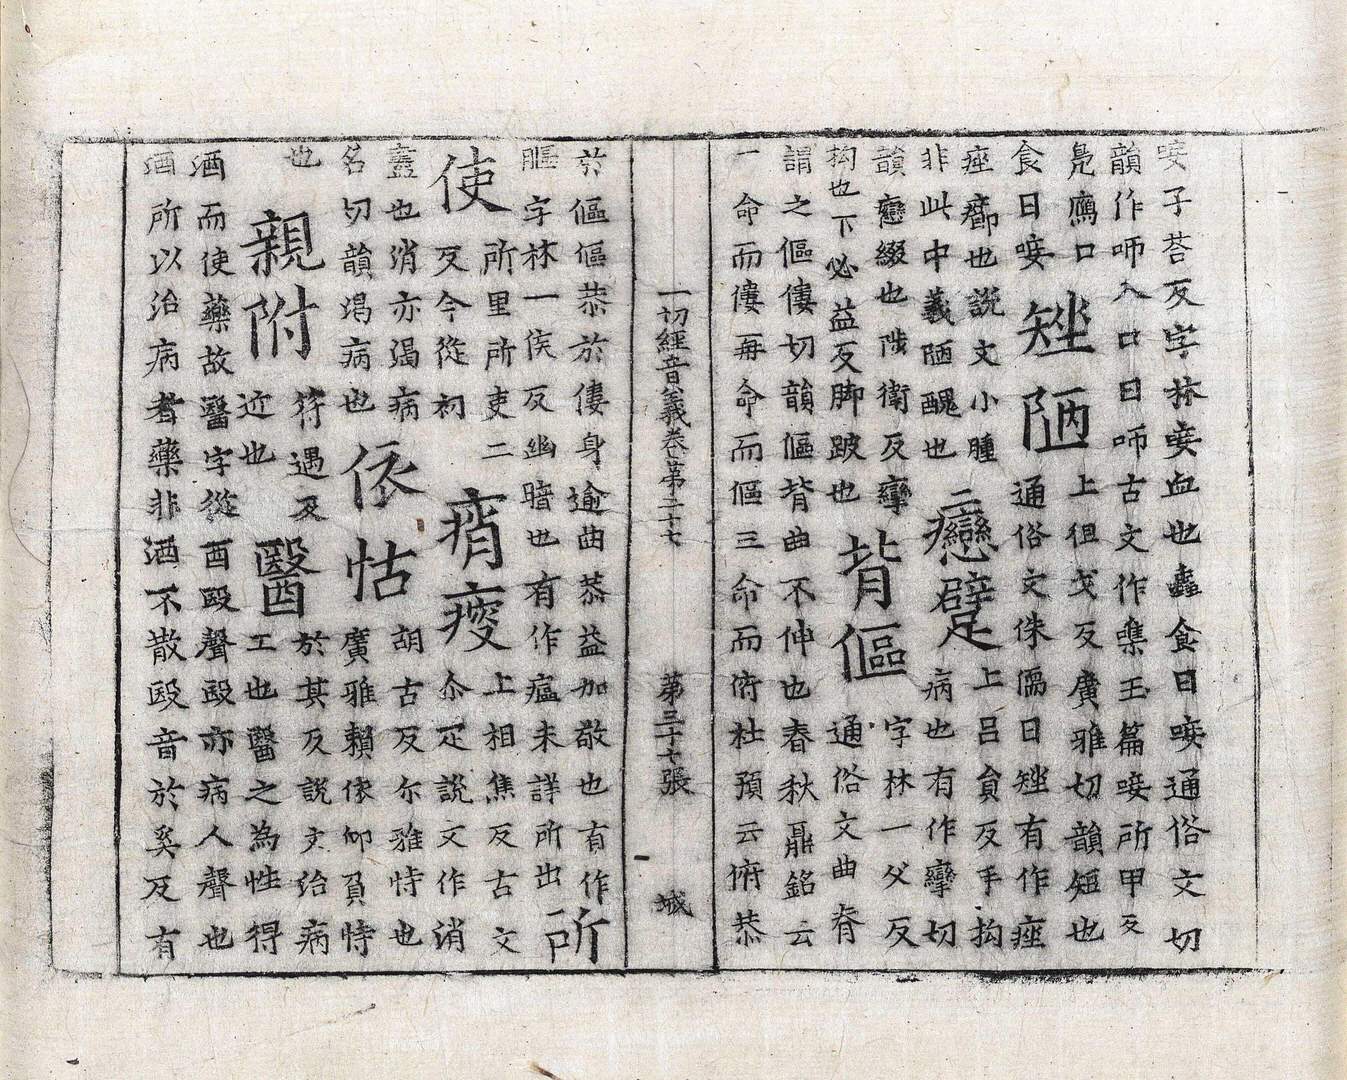 唼子荅反字林唼血也蟲食曰唼通俗文切
韻作咂入口曰咂古文作噍玉篇唼所甲反
鳧鴈口上徂戈反廣雅切韻短也
食曰唼矬陋通俗文侏儒曰矬有作痤
痤癤也說文小腫上呂貟反手拘
非此中義陋醜也二癴躄病也有作攣切
韻癴綴也陟衛反攣字林一父反
拘也下必益反脚跛也背傴通俗文曲脊
謂之傴僂切韻傴背曲不伸也春秋鼎銘云
一命而僂再命而傴三命而俯杜預云俯恭
一切經音義卷第二十七 第三十七張 城
於傴傴恭於僂身逾曲恭益加敬也有作
䁱字林一侯反幽暗也有作瘟未詳所出所
使所里所吏二反今從初痟瘦上相焦反古文作尒疋說文作消
蠱也消亦渴病胡古反尒雅恃也
名切韻渴病也依怙廣雅賴依仰負恃
也親附符遇反近也醫於其反說文治病工也醫之為性得
酒而使藥故醫字從酉殹聲殹亦病人聲也
酒所以治病者藥非酒不散殹音於奚反有